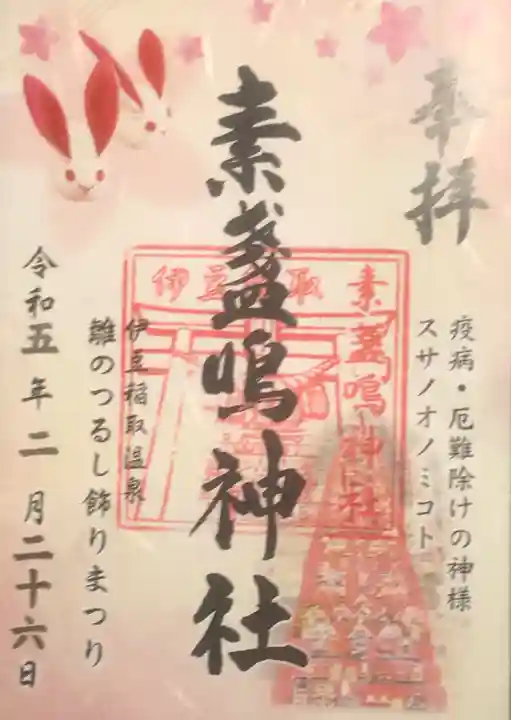 奉拝
疫病・厄難除けの神様
スサノオノミコト
素盞嗚神社
素盞嗚神社
伊豆稲取
伊豆稲取温泉
雛のつるし飾りまつり
令和五年二月二十六日